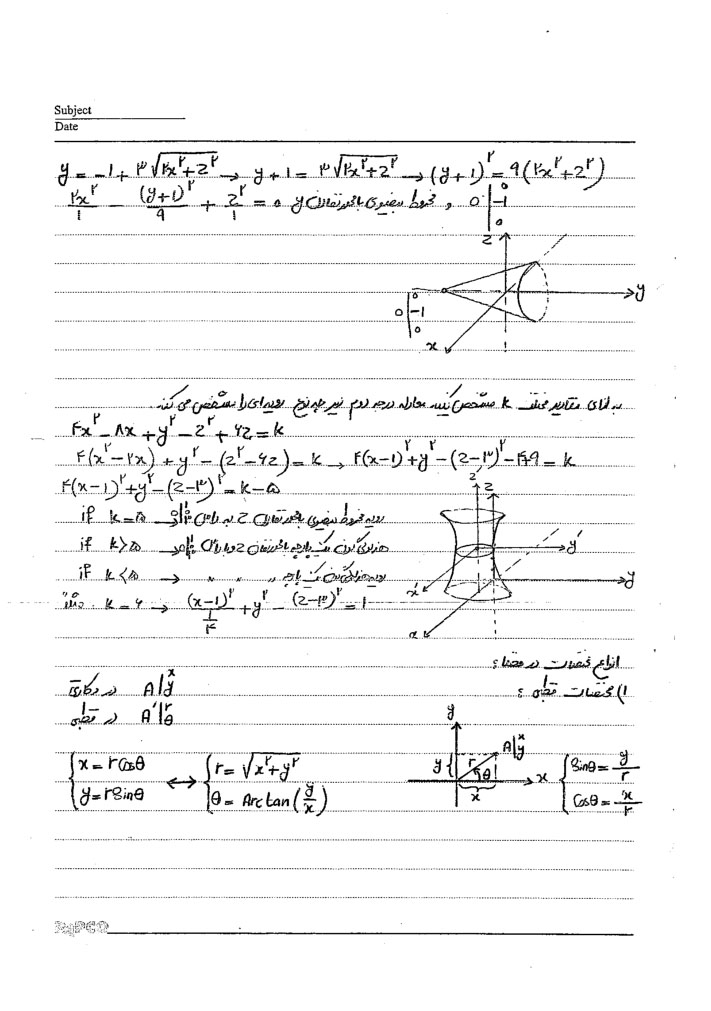 Subject
Date
y = -1 + ۳√(۲x^۲ + z^۲) → y + 1 = ۳√(۲x^۲ + z^۲) → (y + 1)^۲ = 9(۲x^۲ + z^۲)
۲x^۲/1 - (y+1)^۲/9 + z^۲/1 = 0 مخروط بیضوی با محور تقارن y و 0|0 -1 0
z
y
0|0 -1 0
x
به ازای مقادیر مختلف k مشخص کنید معادله درجه دوم زیر چه نوع رویه‌ای را مشخص می‌کند.
۴x^۲ - ۸x + y^۲ - z^۲ + ۶z = k
۴(x^۲ - ۲x) + y^۲ - (z^۲ - ۶z) = k → ۴(x-1)^۲ + y^۲ - (z-۳)^۲ - ۴+9 = k
۴(x-1)^۲ + y^۲ - (z-۳)^۲ = k-۵
if k = ۵ → رویه مخروط بیضوی با محور تقارن z به راس
if k > ۵ → هذلولی‌گون یک پارچه با محور تقارن z
if k < ۵ → رویه هذلولی‌گون پارچه " " "
مثلا: k = ۶ → (x-1)^۲/(1/۴) + y^۲ - (z-۳)^۲/1 = 1
z' z
y'
x'
y
x
انواع مختصات در فضا:
1) مختصات قطبی:
A|x y در دکارتی
A'|r θ در قطبی
{x = r Cosθ
y = r Sinθ ↔ {r = √(x^۲ + y^۲)
θ = Arctan(y/x)
y
A|x y
y{ r θ
x
x
{Sinθ = y/r
Cosθ = x/r
PAPCO